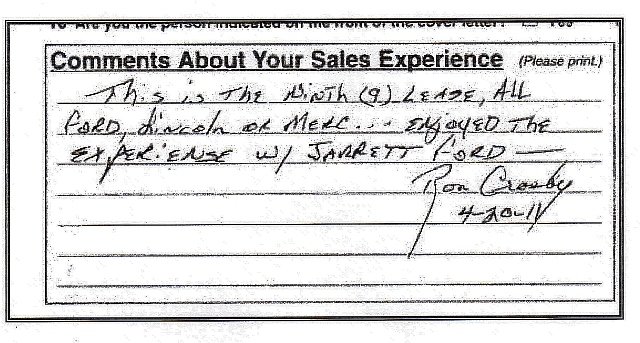 10 Are you the person indicated on the front of the cover letter? Yes
Comments About Your Sales Experience (Please print.)
This is The Ninth (9) LEASE, ALL
FORD, Lincoln OR MERC... ENjoyED THE
EXPERiENSE W/ JARRETT FORD —
Ron Crosby
4-20-11